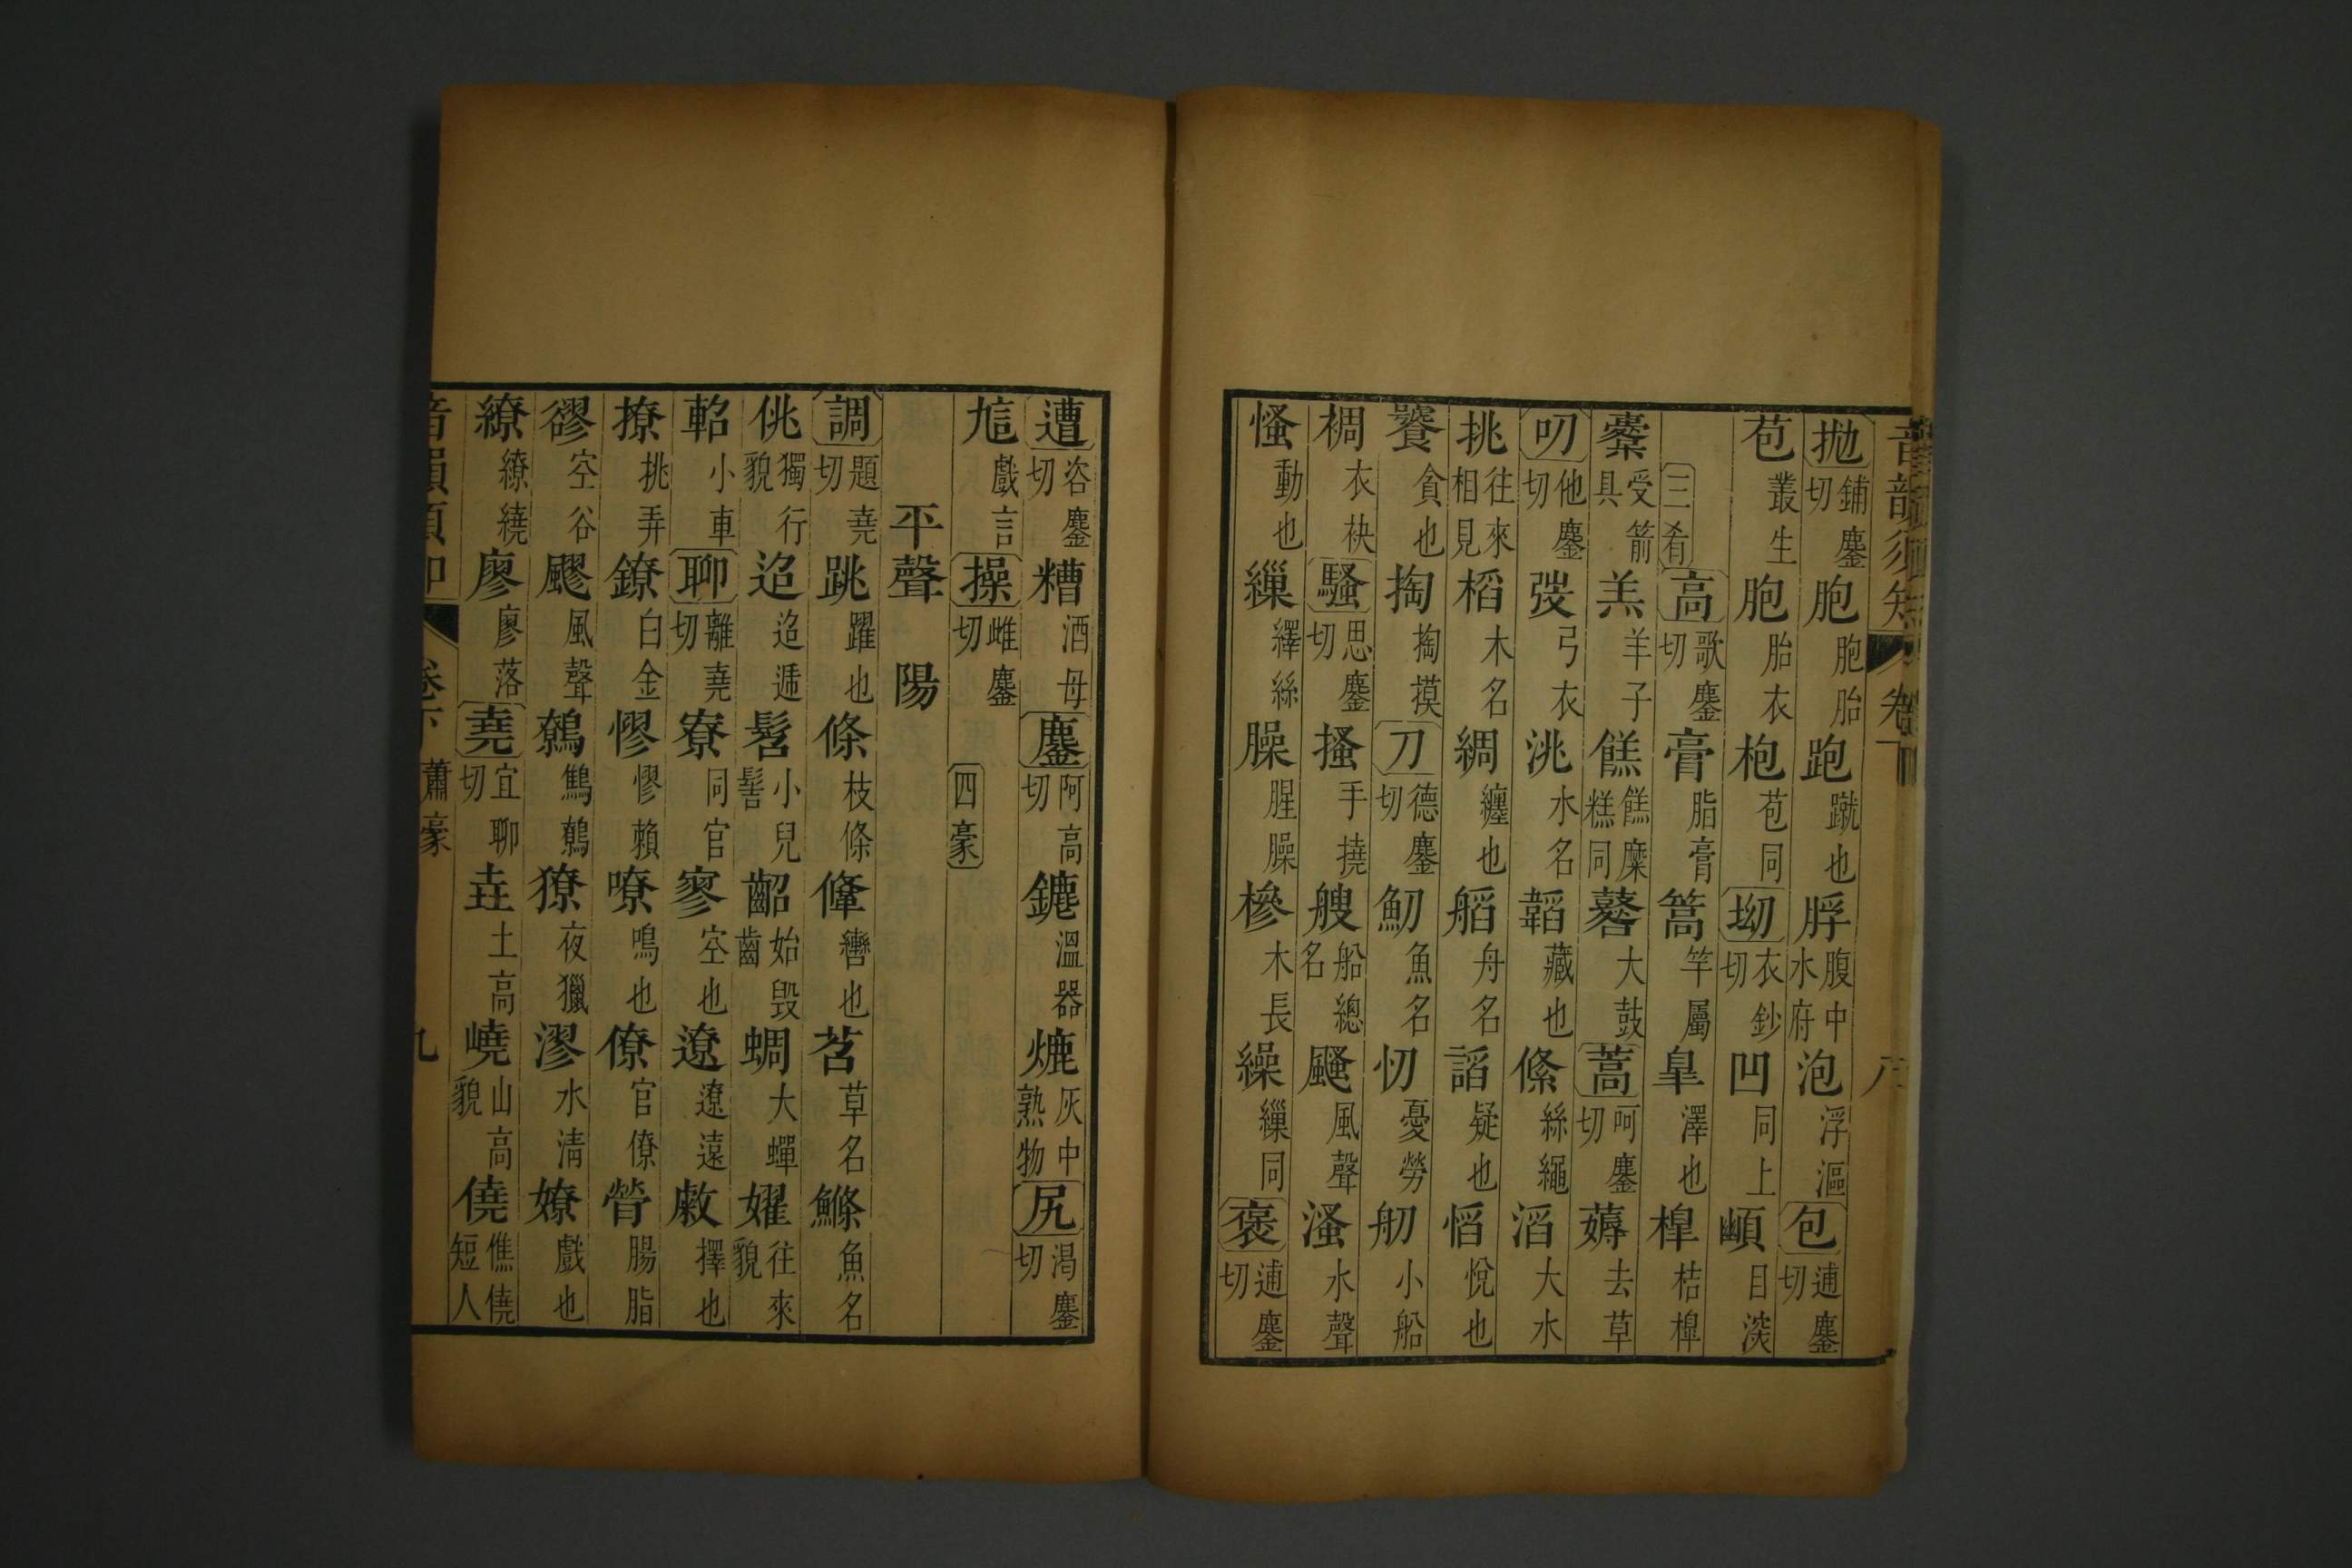 音韻須知 卷下 八
拋鋪鏖切 胞胞胎 跑蹴也 脬腹中水府 泡浮漚 包逋鏖切
苞叢生 胞胎衣 枹苞同 坳衣鈔切 凹同上 㟑目深
三肴 高歌鏖切 膏脂膏 篙竿屬 臯澤也 橰桔橰
櫜受箭具 羔羊子 餻餻糜糕同 鼛大鼓 蒿呵鏖切 薅去草
叨他鏖切 弢弓衣 洮水名 韜藏也 絛絲繩 滔大水
挑往來相見 槄木名 綢纏也 艄舟名 謟疑也 慆悅也
饕貪也 掏掏摸 刀德鏖切 魛魚名 忉憂勞 舠小船
裯衣袂 騷思鏖切 搔手撓 艘船總名 颾風聲 溞水聲
慅動也 繅繹絲 臊腥臊 槮木長 繰繅同 褒逋鏖切
遭咨鏖切 糟酒母 鏖阿高切 鑣溫器 熝灰中熟物 尻渴鏖切
訄戲言 操雌鏖切 四豪
平聲 陽
調題堯切 跳躍也 條枝條 鞗轡也 苕草名 鰷魚名
佻獨行貌 迢迢遞 髫小兒髻 齠始毀齒 蜩大蟬 嬥往來貌
軺小車 聊離堯切 寮同官 寥空也 遼遼遠 敹擇也
撩挑弄 鐐白金 憀憀賴 嘹鳴也 僚官僚 膋腸脂
豂空谷 飂風聲 鷯鷦鷯 獠夜獵 漻水清 嫽戲也
繚繚繞 廖廖落 堯宜聊切 垚土高 嶢山高貌 僥僬僥短人
音韻須知 卷下 蕭豪 九